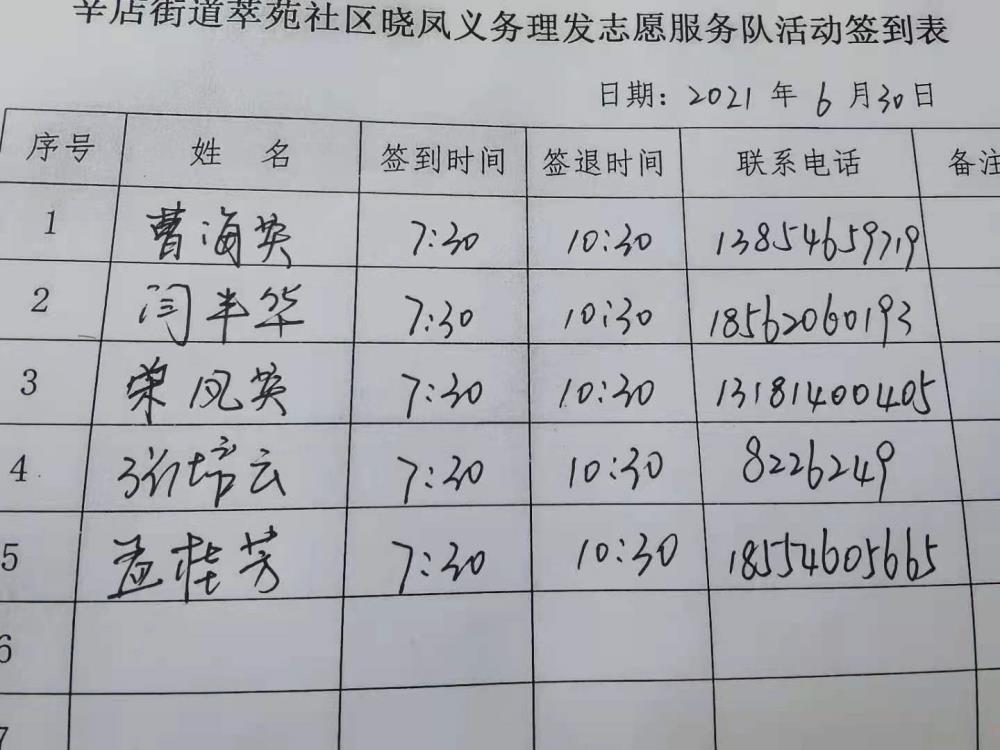 辛店街道萃苑社区晓凤义务理发志愿服务队活动签到表
日期：2021 年 6 月 30 日
序号 姓 名 签到时间 签退时间 联系电话 备注
1 曹海英 7:30 10:30 13854659719
2 闫丰华 7:30 10:30 18562060193
3 荣凤英 7:30 10:30 13181400405
4 张培云 7:30 10:30 8226249
5 孟桂芳 7:30 10:30 18554605665
6
7